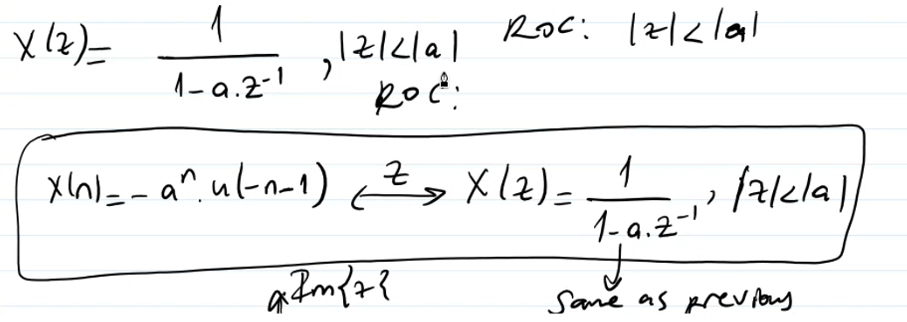 X(z) = 1 / (1 - a.z⁻¹) , |z|<|a| ROC: |z|<|a|
ROC:
x(n) = -aⁿ.u(-n-1) ⟷ᶻ X(z) = 1 / (1 - a.z⁻¹) , |z|<|a|
Im{z{
Same as previous